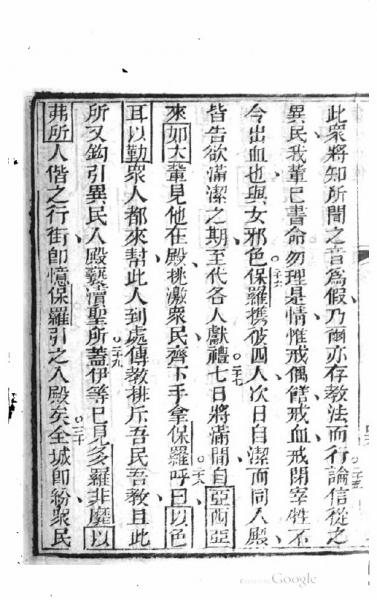 此衆將知所聞之言爲假乃爾亦存教法而行論信從之
異民我輩已書命勿理是情惟戒偶饍戒血戒閉宰牲不
令出血也與女邪色保羅携彼四人次日自潔而同人殿
皆告欲滿潔之期至代各人獻禮七日將滿間自亞西亞
來如大輩見他在殿挑激衆民齊下手拿保羅呼曰以色
耳以勤衆人都來幫此人到處傳教排斥吾民吾教且此
所又鈎引異民入殿褻瀆聖所蓋伊等已見多羅非麼以
弗所人偕之行街卽憶保羅引之入殿矣全城卽紛衆民
Google